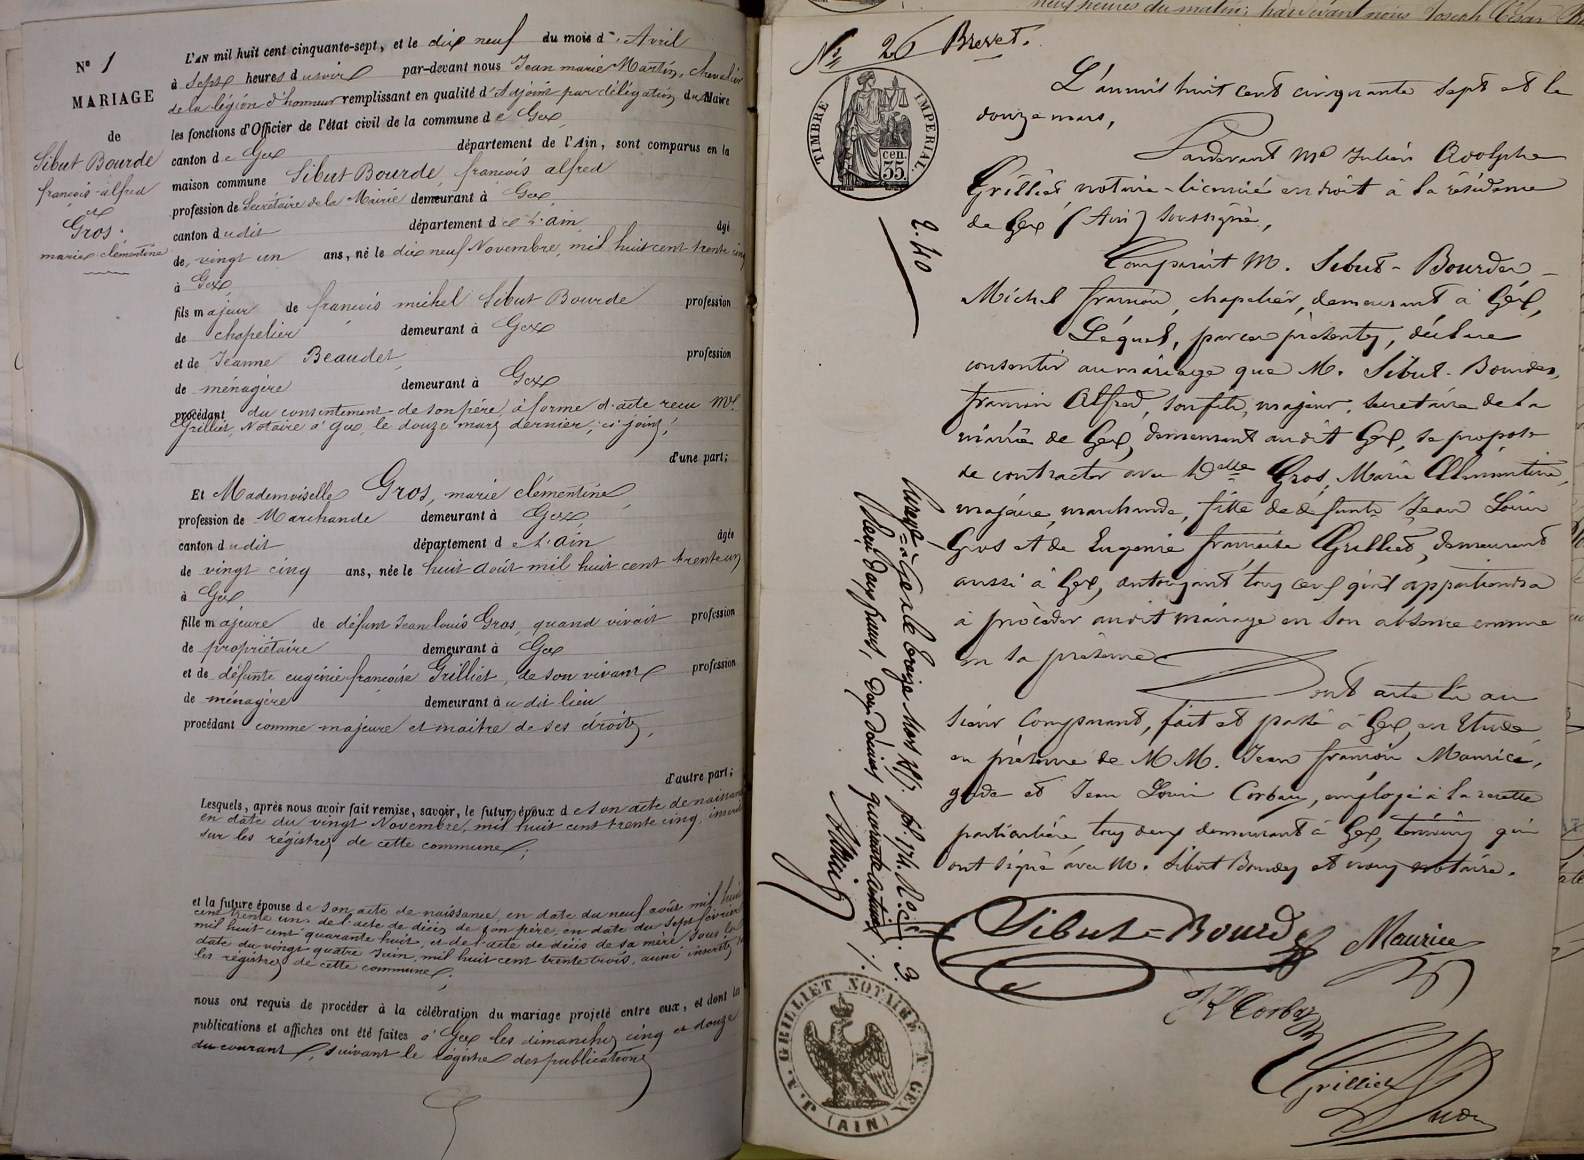 N° 1
MARIAGE
de
Sibut Bourde
françois-alfred
et
Gros
marie clémentine
L'AN mil huit cent cinquante-sept, et le dix neuf du mois d'Avril
à Sept heures du soir par-devant nous Jean marie Martin, chevalier
de la légion d'honneur remplissant en qualité d'Adjoint par délégation du Maire
les fonctions d'Officier de l'état civil de la commune de Gex
canton de Gex département de l'Ain, sont comparus en la
maison commune Sibut Bourde françois alfred
profession de Secrétaire de la Mairie demeurant à Gex
canton dudit département de l'ain âgé
de vingt un ans, né le dix neuf Novembre, mil huit cent trente cinq
à Gex
fils majeur de françois michel Sibut Bourde profession
de chapelier demeurant à Gex
et de Jeanne Beaudet profession
de ménagère demeurant à Gex
procédant du consentement de son père, à forme d'acte reçu Me
Grilliet, Notaire à Gex, le douze mars dernier, ci joint,
d'une part;
Et Mademoiselle Gros, marie clémentine
profession de Marchande demeurant à Gex
canton dudit département de l'ain âgée
de vingt cinq ans, née le huit août mil huit cent trente un
à Gex
fille majeure de défunt Jean louis Gros, quand vivait profession
de propriétaire demeurant à Gex
et de défunte eugénie françoise Grilliet, de son vivant profession
de ménagère demeurant audit lieu
procédant comme majeure et maitre de ses droits,
d'autre part;
Lesquels, après nous avoir fait remise, savoir, le futur époux de son acte de naissance
en date du vingt Novembre, mil huit cent trente cinq, inscrit
sur les régistres de cette commune;
et la future épouse de son acte de naissance, en date du neuf août mil huit
cent trente un; de l'acte de décès de son père, en date du Sept février
mil huit cent quarante huit, et de l'acte de décès de sa mère, sous la
date du vingt quatre Juin, mil huit cent trente trois, aussi inscrits
les régistres de cette commune;
nous ont requis de procéder à la célébration du mariage projeté entre eux, et dont les
publications et affiches ont été faites à Gex les dimanches cinq et douze
du courant, suivant le régistre des publications
neuf heures du matin; pardevant nous Joseph César
N° 26 Brevet.
TIMBRE IMPERIAL.
35 cen.
2.40
L'an mil huit cent cinquante sept et le
douze mars,
Pardevant Me Julien Adolphe
Grilliet notaire-licencié en droit à la résidence
de Gex (Ain) soussigné,
Comparait M. Sibut-Bourde
Michel françois, chapelier, demeurant à Gex,
Lequel, par ces présentes, déclare
consentir au mariage que M. Sibut-Bourde,
françois Alfred, son fils, majeur, secrétaire de la
mairie de Gex, demeurant audit Gex, se propose
de contracter avec Delle Gros, Marie Clémentine,
majeure, marchande, fille de defunts Jean Louis
Gros et de Eugénie françoise Grilliet, demeurant
aussi à Gex, autorisant tous ceux qu'il appartiendra
à procéder audit mariage en son absence comme
en sa présence
Dont acte lu au
sieur Comparant, fait et passé à Gex, en Etude,
en présence de M M. Jean françois Maurice,
garde et Jean Louis Corbaz, employé à la recette
particulière, tous deux demeurant à Gex, témoins qui
ont signé avec M. Sibut Bourde et nous notaire.
Enregé à Gex le treize Mars 1857 fol. 174. R. c. 3.
Reçu deux francs, dix. deux quarante centimes
Sibut=Bourde
Maurice
JL Corbaz
Grilliet
J. A. GRILLIET NOTAIRE A GEX
(AIN)